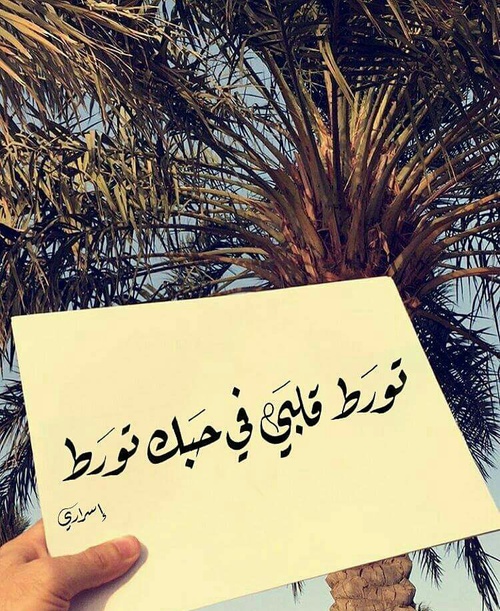 تورَط قلبَي في حبَك تورَط
إسراري